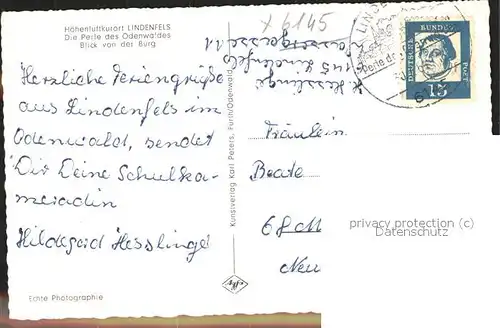 Höhenluftkurort LINDENFELS
Die Perle des Odenwaldes
Blick von der Burg
Herzliche Feriengrüße
aus Lindenfels im
Odenwald, sendet
Dir Deine Schulka-
meradin
Hildegard Hesslinge
Echte Photographie
Kunstverlag Karl Peters, Fürth/Odenwald
x 6145
H. Hesslinge
6145 Lindenfels
LINDE
Perle d
DEUTSCHE
BUNDES
POST
15
Fräulein
Beate
68
Neu
privacy protection (c)
Datenschutz